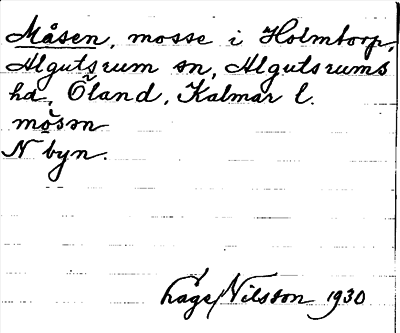 Måsen, mosse i Holmtorp,
Algutsrum sn, Algutsrums
hd, Öland, Kalmar l.
måsən
N byn.
Låge Nilsson 1930